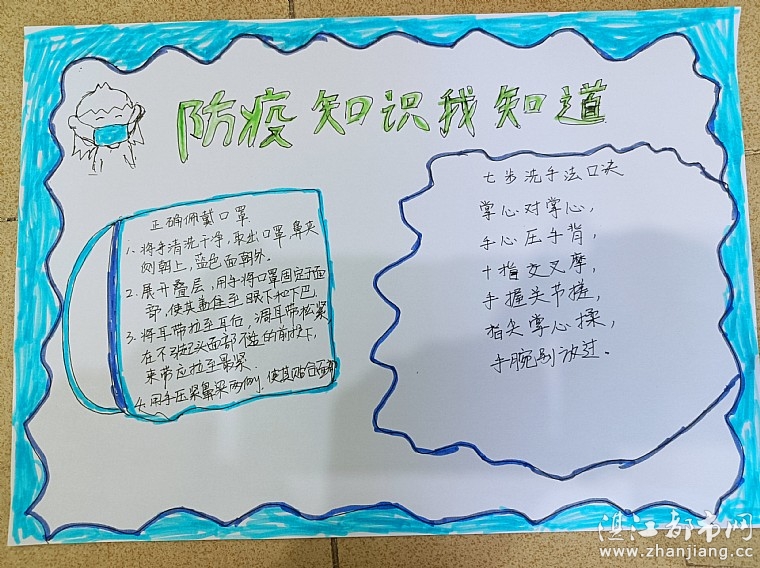 防疫知识我知道
正确佩戴口罩
1、将手清洗干净,取出口罩,鼻夹
侧朝上,蓝色面朝外。
2、展开叠层,用手将口罩固定于面
部,使其盖住至眼下和下巴
3、将耳带拉至耳后,调耳带松紧,
在不引起头面部不适的前提下,
束带应拉至最紧.
4、用手压紧鼻梁两侧,使其贴合面部
七步洗手法口决
掌心对掌心,
手心压手背,
十指交叉摩,
手握关节搓,
指尖掌心揉,
手腕别放过。
湛江都市网
www.zhanjiang.cc